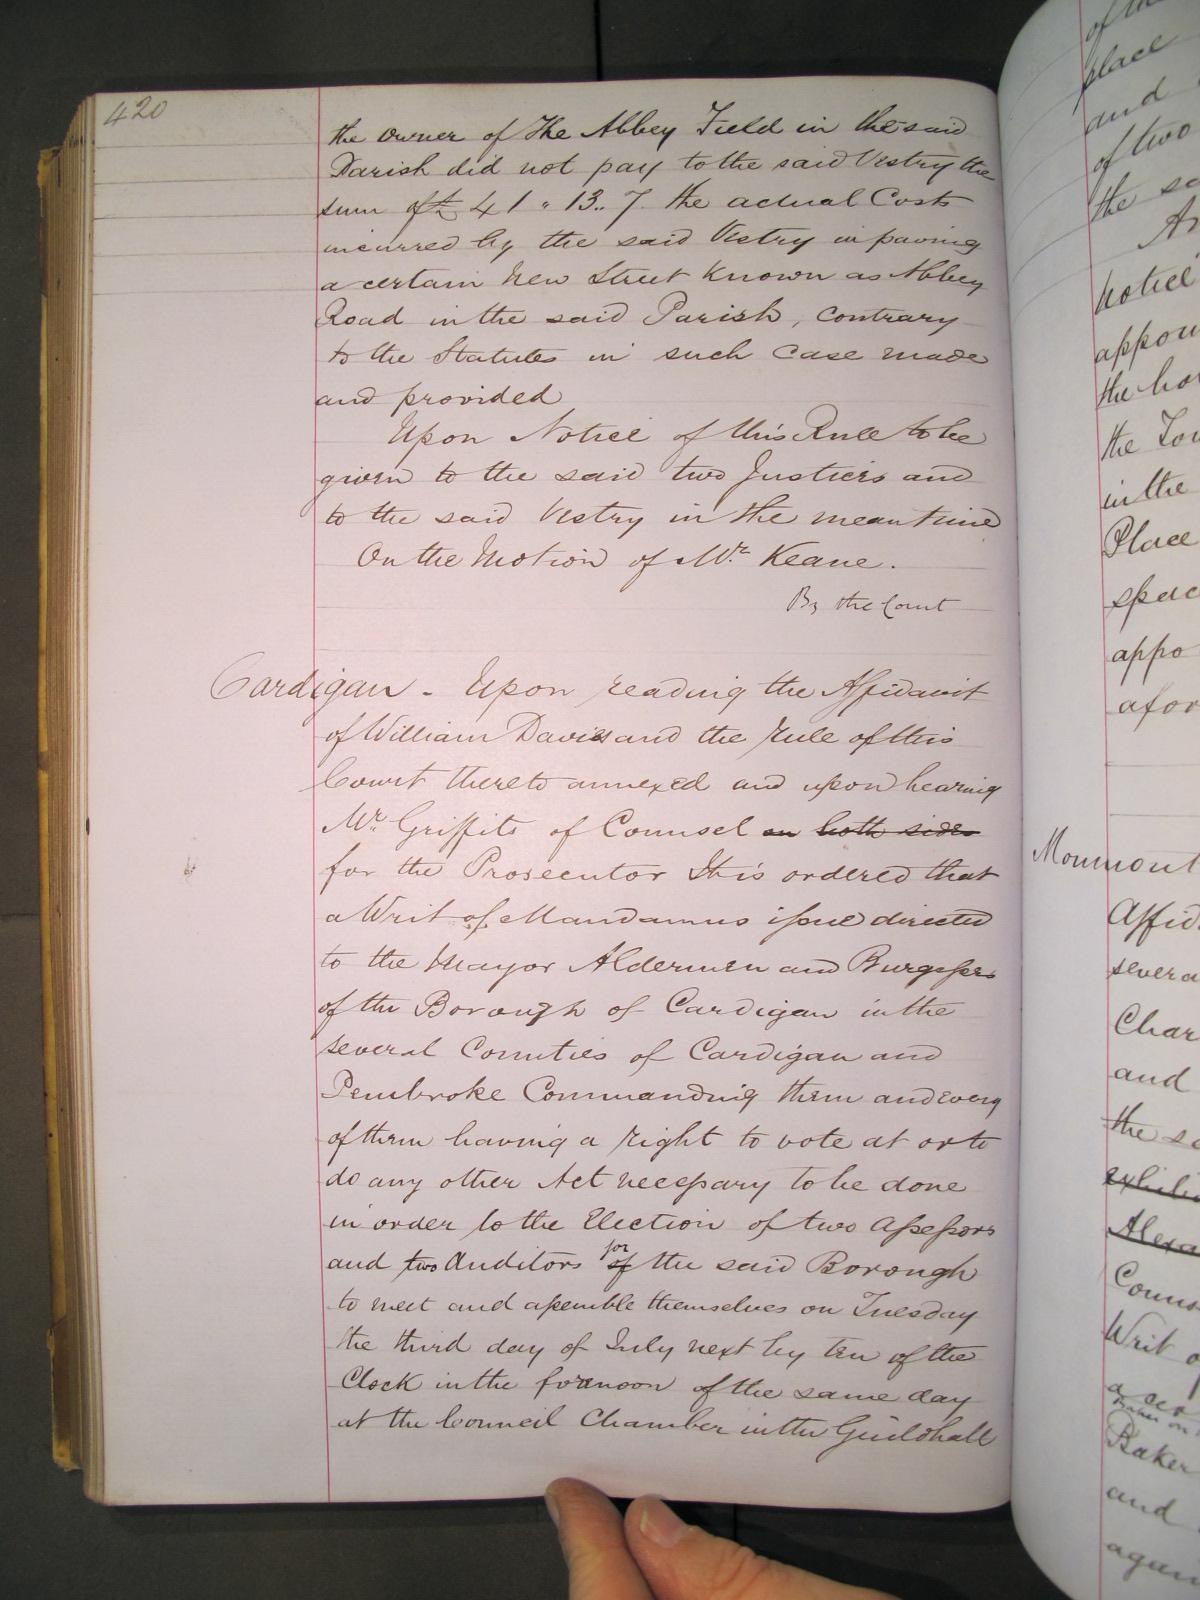 420
the owner of The Abbey Field in the said
Parish did not pay to the said Vestry the
sum of £41 " 13.. 7. the actual Costs
incurred by the said Vestry in paving
a certain New Street known as Abbey
Road in the said Parish, contrary
to the Statutes in such case made
and provided
Upon Notice of this Rule to be
given to the said two Justices and
to the said Vestry in the meantime
On the Motion of Mr. Keane.
By the Court
Cardigan - Upon reading the Affidavit
of William Davies and the rule of this
Court thereto annexed and upon hearing
Mr. Griffits of Counsel on both sides
for the Prosecutor It is ordered that
a Writ of Mandamus issue directed
to the Mayor Aldermen and Burgesses
of the Borough of Cardigan in the
several Counties of Cardigan and
Pembroke Commanding them and every
of them having a right to vote at or to
do any other Act necessary to be done
in order to the Election of two Assessors
and two Auditors of for the said Borough
to meet and assemble themselves on Tuesday
the third day of July next by ten of the
Clock in the forenoon of the same day
at the Council Chamber in the Guildhall
place
and
of two
the
notice
appoi
the
the
in the
Place
appo
afor
Monmout
Affid
severa
Char
and
the
Alexa
Couns
Writ
Baker
and
again